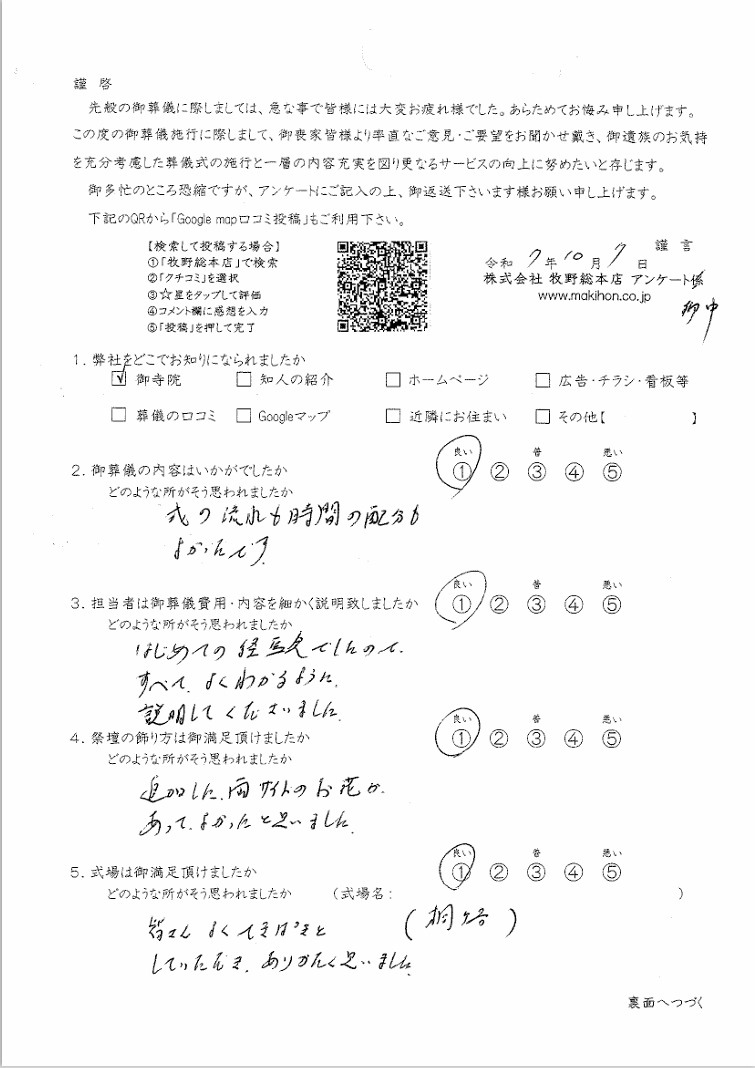 謹 啓
先般の御葬儀に際しましては、急な事で皆様には大変お疲れ様でした。あらためてお悔み申し上げます。
この度の御葬儀施行に際しまして、御喪家皆様より率直なご意見・ご要望をお聞かせ戴き、御遺族のお気持
を充分考慮した葬儀式の施行と一層の内容充実を図り更なるサービスの向上に努めたいと存じます。
御多忙のところ恐縮ですが、アンケートにご記入の上、御返送下さいます様お願い申し上げます。
下記のQRから「Google map口コミ投稿」もご利用下さい。
謹 言
【検索して投稿する場合】
①「牧野総本店」で検索
②「クチコミ」を選択
③☆星をタップして評価
④コメント欄に感想を入力
⑤「投稿」を押して完了
令和 7年 10月 7日
株式会社 牧野総本店 アンケート係
www.makihon.co.jp
御中
1. 弊社をどこでお知りになられましたか
☑ 御寺院 □ 知人の紹介 □ ホームページ □ 広告・チラシ・看板等
□ 葬儀の口コミ □ Googleマップ □ 近隣にお住まい □ その他【 】
良い 普 悪い
2. 御葬儀の内容はいかがでしたか ① ② ③ ④ ⑤
どのような所がそう思われましたか
式の流れも時間の配分も
よかったです
良い 普 悪い
3. 担当者は御葬儀費用・内容を細かく説明致しましたか ① ② ③ ④ ⑤
どのような所がそう思われましたか
はじめての経験でしたので、
すべて、よくわかるように、
説明してくださいました。
良い 普 悪い
4. 祭壇の飾り方は御満足頂けましたか ① ② ③ ④ ⑤
どのような所がそう思われましたか
追加した、両サイドのお花が、
あって、よかったと思いました。
良い 普 悪い
5. 式場は御満足頂けましたか ① ② ③ ④ ⑤
どのような所がそう思われましたか （式場名： ）
皆さん よくてきぱきと (桐ヶ谷)
していただき、ありがたく思いました
裏面へつづく